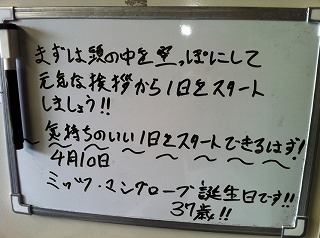 まずは頭の中を空っぽにして
元気な挨拶から1日をスタート
しましょう!!
気持ちのいい1日をスタートできるはず!
4月10日
ミッツ・マングローブ誕生日です!!
37歳!!